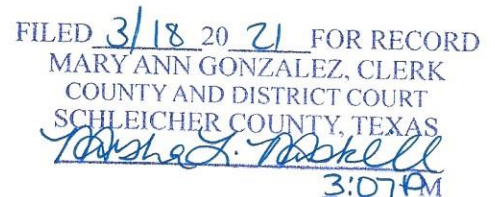 FILED 3/18 20 21 FOR RECORD
MARY ANN GONZALEZ, CLERK
COUNTY AND DISTRICT COURT
SCHLEICHER COUNTY, TEXAS
3:07 PM